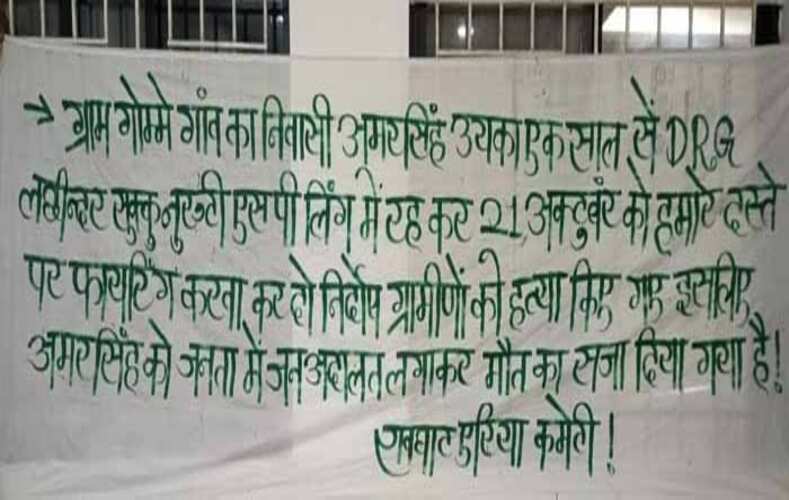 → ग्राम गोम्मे गांव का निवासी अमरसिंह उयका एक साल सें DRG
लछीन्दर सुक्कु नुरूटी एस पी लिंग में रह कर 21 अक्टुबंर को हमारे दस्ते
पर फायरिंग करवा कर दो निर्दोष ग्रामीणों की हत्या किए गए इसलिए
अमरसिंह को जनता में जन अदालत लगाकर मौत का सजा दिया गया है!
रावघाट एरिया कमेटी!